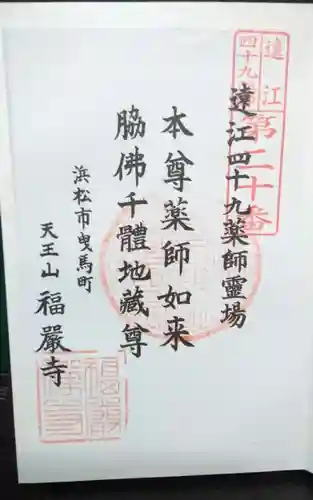 遠江
四十九薬師
第二十番
遠江四十九薬師霊場
本尊薬師如来
脇佛千體地蔵尊
浜松市曳馬町
天王山福嚴寺
福嚴禅寺